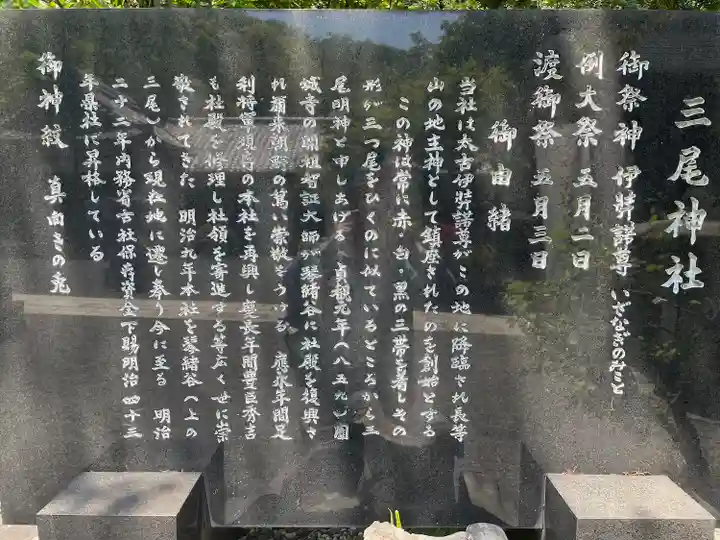 三尾神社
御祭神 伊弉諾尊 いざなぎのみこと
例大祭 五月二日
渡御祭 五月三日
御由緒
当社は太古伊弉諾尊がこの地に降臨され長等
山の地主神として鎮座されたのを創始とする
この神は常に赤・白・黒の三帯を着しその
形が三つ尾をひくのに似ているところから三
尾明神と申しあげる 貞観元年(八五九)園
城寺の開祖智証大師が琴緒谷に社殿を復興さ
れ爾来朝野の篤い崇敬をうける 應永年間足
利将軍須 の本社を再興し慶長年間豊臣秀吉
も社殿を修理し社領を寄進する等広く世に崇
敬されてきた 明治九年本社を琴緒谷(上の
三尾)から現在地に遷し奉り今に至る 明治
二十二年内務省古社保存資金下賜明治四十三
年縣社に昇格している
御神紋 真向きの兎